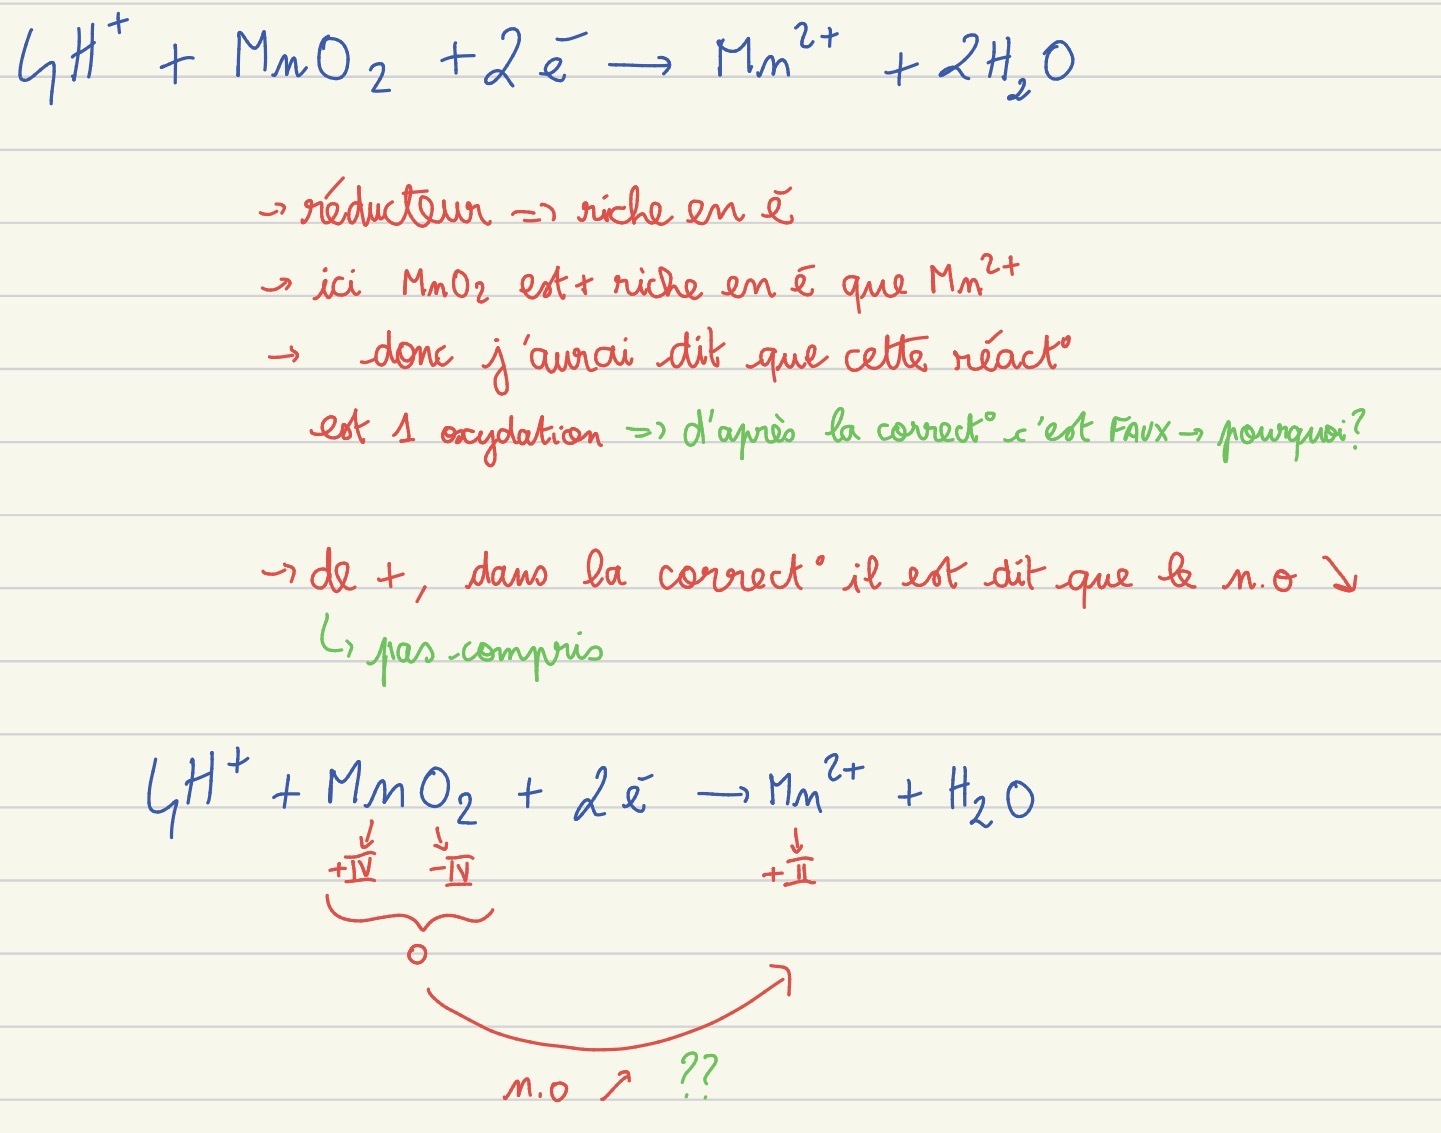 4H⁺ + MnO₂ + 2é⁻ → Mn²⁺ + 2H₂O
→ réducteur => riche en é⁻
→ ici MnO₂ est + riche en é⁻ que Mn²⁺
→ donc j'aurai dit que cette réact°
est 1 oxydation => d'après la correct° c'est FAUX → pourquoi?
→ de +, dans la correct° il est dit que le n.o ↘
↳ pas compris
4H⁺ + MnO₂ + 2é⁻ → Mn²⁺ + H₂O
+IV -IV +II
0
n.o ↗ ??